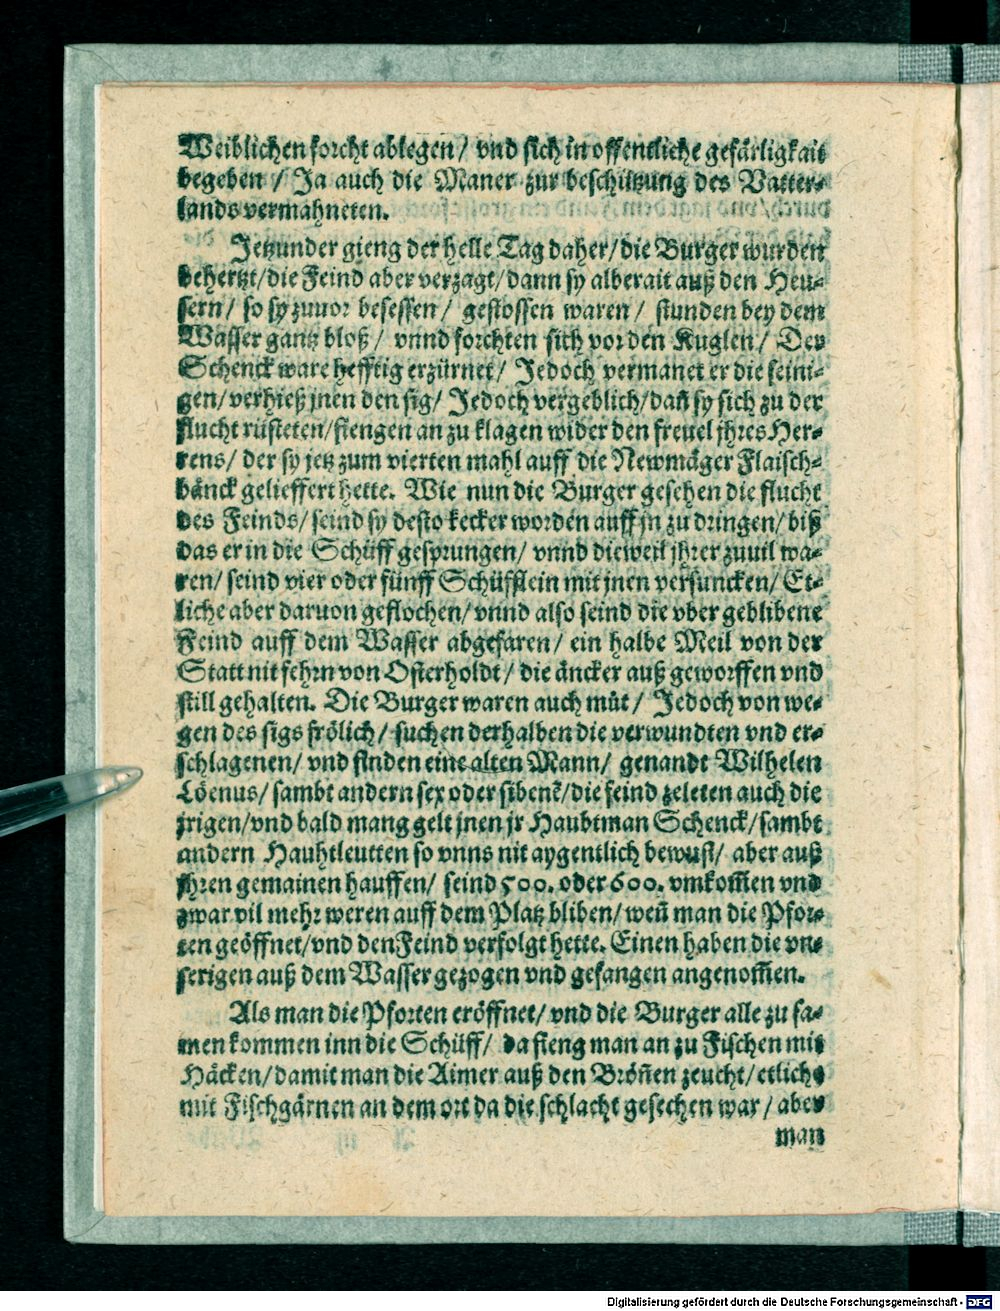 Weiblichen forcht ablegen / vnd sich in offentliche gefärligkait
begeben / Ja auch die Maner zur beschützung des Vatter-
lands vermahneten.
Jetzunder gieng der helle Tag daher / die Burger wurden
behertzt / die Feind aber verzagt / dann sy alberait auß den Heu-
sern / so sy zuuor besessen / gestossen waren / stunden bey dem
Wasser gantz bloß / vnnd forchten sich vor den Kuglen / Der
Schenck ware hefftig erzürnet / Jedoch vermanet er die seini-
gen / verhieß jnen den sig / Jedoch vergeblich / dañ sy sich zu der
flucht rüsteten / fiengen an zu klagen wider den freuel jhres Her-
rens / der sy jetz zum vierten mahl auff die Newmäger Flaisch-
bänck gelieffert hette. Wie nun die Burger gesehen die flucht
des Feinds / seind sy desto kecker worden auff jn zu dringen / biß
das er in die Schüff gesprungen / vnnd dieweil jhrer zuuil wa-
ren / seind vier oder fünff Schüfflein mit jnen versuncken / Et-
liche aber daruon geflochen / vnnd also seind die vber geblibene
Feind auff dem Wasser abgefaren / ein halbe Meil von der
Statt nit fehrn von Osterholdt / die äncker auß geworffen vnd
still gehalten. Die Burger waren auch müt / Jedoch von we-
gen des sigs frölich / suchen derhalben die verwundten vnd er-
schlagenen / vnd finden eine alten Mann / genandt Wilhelen
Löenus / sambt andern sex oder sibenē / die feind zeleten auch die
jrigen / vnd bald mang gelt jnen jr Haubtman Schenck / sambt
andern Hauhtleutten so vnns nit aygentlich bewust / aber auß
jhren gemainen hauffen / seind 500. oder 600. vmkom̃en vnd
zwar vil mehr weren auff dem Platz bliben / weñ man die Pfor-
ten geöffnet / vnd den Feind verfolgt hette. Einen haben die vn-
serigen auß dem Wasser gezogen vnd gefangen angenom̃en.
Als man die Pforten eröffnet / vnd die Burger alle zu sa-
men kommen inn die Schüff / da fieng man an zu Fischen mit
Häcken / damit man die Aimer auß den Bröñen zeucht / etliche
mit Fischgärnen an dem ort da die schlacht gesechen war / aber
man
Digitalisierung gefördert durch die Deutsche Forschungsgemeinschaft - DFG